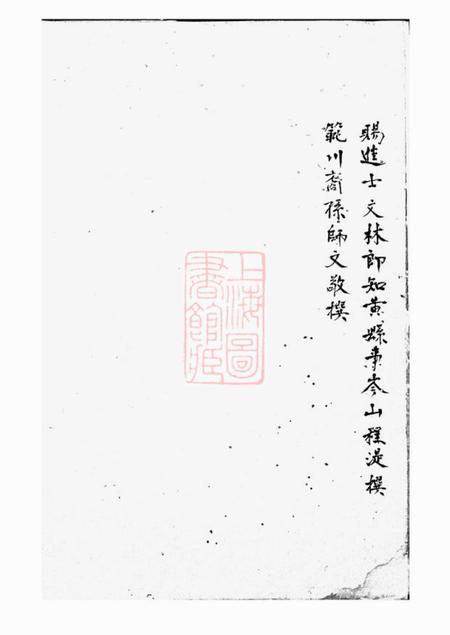 賜進士文林郎知黃縣事岑山程湜撰
範川裔孫師文敬撰
上海圖
書館藏